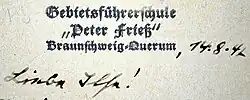 Gebietsführerschule
„Peter Frieß”
Braunschweig-Querum, 14.8.42
Liebe Ilse!